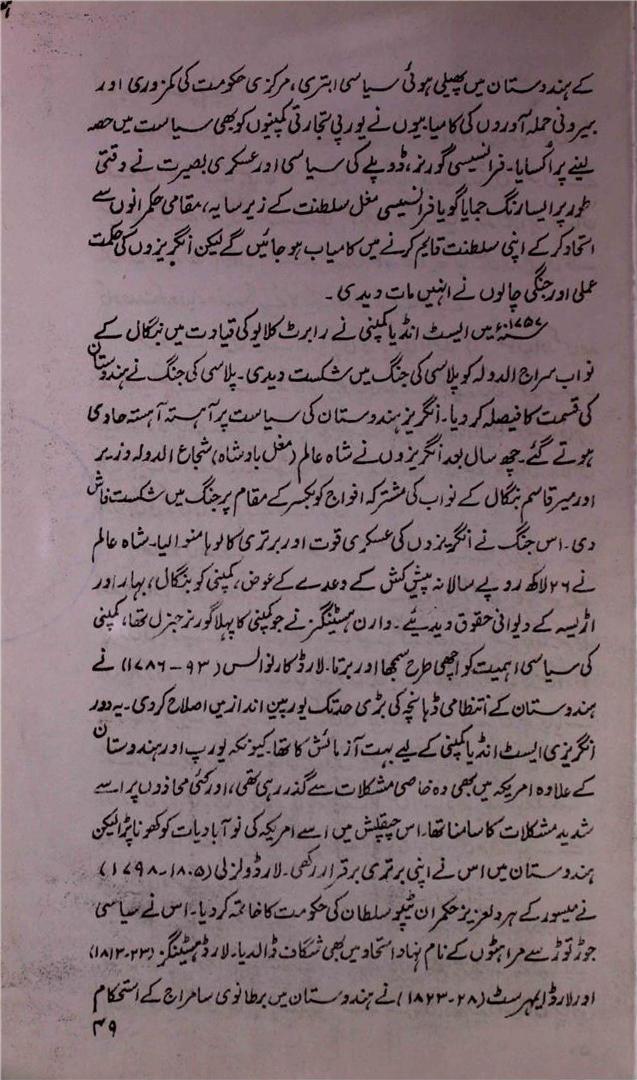 کے ہندوستان میں پھیلی ہوئی سیاسی ابتری، مرکزی حکومت کی کمزوری اور
بیرونی حملہ آوروں کی کامیابیوں نے یورپی تجارتی کمپنیوں کو بھی سیاست میں حصہ
لینے پر اُکسایا۔ فرانسیسی گورنر، ڈوپلے کی سیاسی اور عسکری بصیرت نے وقتی
طور پر ایسا رنگ جمایا گویا فرانسیسی مغل سلطنت کے زیر سایہ، مقامی حکمرانوں سے
اتحاد کر کے اپنی سلطنت قایم کرنے میں کامیاب ہو جائیں گے لیکن انگریزوں کی حکمت
عملی اور جنگی چالوں نے انہیں مات دیدی۔
۱۷۵۷ء میں ایسٹ انڈیا کمپنی نے رابرٹ کلایو کی قیادت میں بنگال کے
نواب سراج الدولہ کو پلاسی کی جنگ میں شکست دیدی۔ پلاسی کی جنگ نے ہندوستان
کی قسمت کا فیصلہ کر دیا۔ انگریز ہندوستان کی سیاست پر آہستہ آہستہ حاوی
ہوتے گئے۔ چھ سال بعد انگریزوں نے شاہ عالم (مغل بادشاہ) شجاع الدولہ وزیر
اور میر قاسم بنگال کے نواب کی مشترکہ افواج کو بکسر کے مقام پر جنگ میں شکست فاش
دی۔ اس جنگ نے انگریزوں کی عسکری قوت اور برتری کا لوہا منوا لیا۔ شاہ عالم
نے ۲۶ لاکھ روپے سالانہ پیش کش کے وعدے کے عوض، کمپنی کو بنگال، بہار اور
اڑیسہ کے دیوانی حقوق دیدیئے۔ وارن ہسٹینگز نے جو کمپنی کا پہلا گورنر جنرل تھا، کمپنی
کی سیاسی اہمیت کو اچھی طرح سمجھا اور برتا۔ لارڈ کارنوالس (۹۳-۱۷۸۶) نے
ہندوستان کے انتظامی ڈہانچہ کی بڑی حد تک یورپین انداز میں اصلاح کر دی۔ یہ دور
انگریزی ایسٹ انڈیا کمپنی کے لیے بہت آزمائش کا تھا۔ کیونکہ یورپ اور ہندوستان
کے علاوہ امریکہ میں بھی وہ خاصی مشکلات سے گذر رہی تھی، اور کئی محاذوں پر اسے
شدید مشکلات کا سامنا تھا۔ اس چپقلش میں اسے امریکہ کی نو آبادیات کو کھونا پڑا لیکن
ہندوستان میں اس نے اپنی برتری برقرار رکھی۔ لارڈ ولزلی (۱۸۰۵-۱۷۹۸)
نے میسور کے ہر دلعزیز حکمران ٹیپو سلطان کی حکومت کا خاتمہ کر دیا۔ اس نے سیاسی
جوڑ توڑ سے مراہٹوں کے نام نہاد اتحاد میں بھی شگاف ڈالدیا۔ لارڈ ہسٹینگز (۲۳-۱۸۱۳)
اور لارڈ ایمہرسٹ (۲۸-۱۸۲۳) نے ہندوستان میں برطانوی سامراج کے استحکام
۴۹